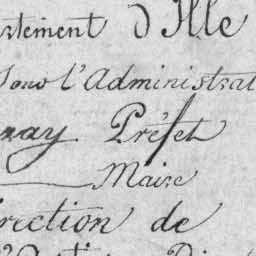 artement d'Ille
Sous l'Administrat
nay Préfet
Maire
irection de